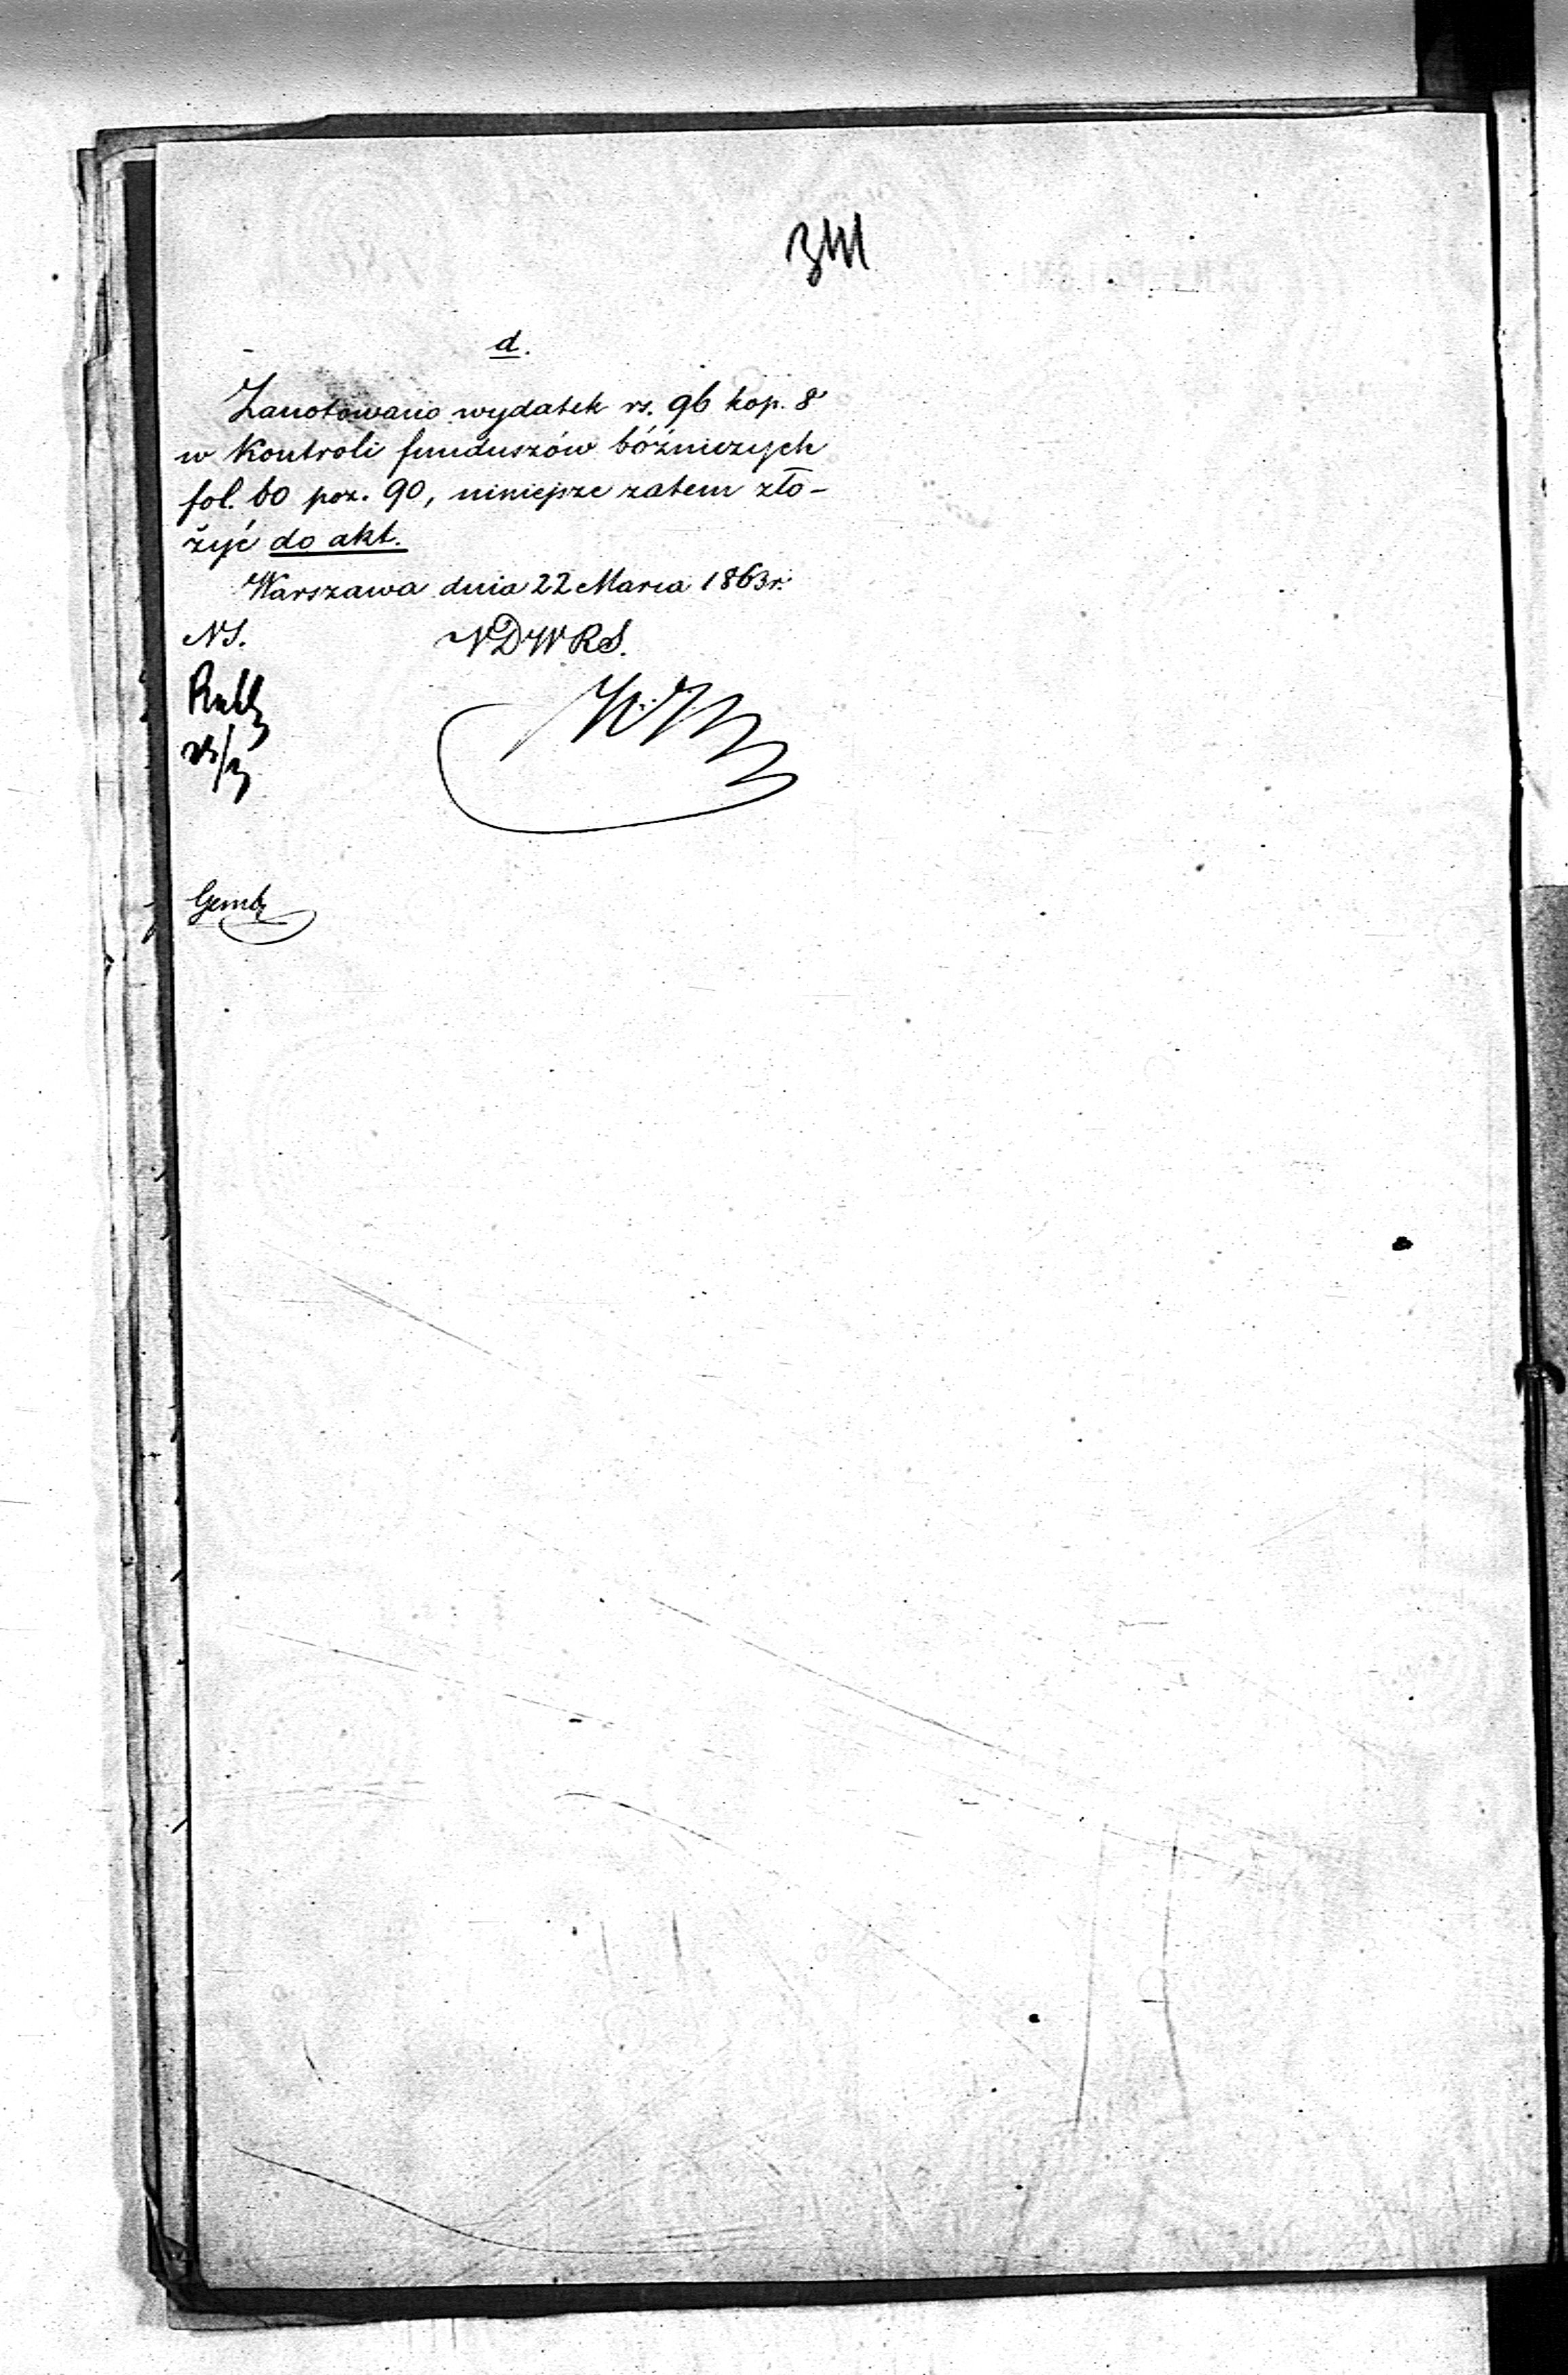 d.
Zanotowano wydatek rs. 96 kop. 8
w Kontroli funduszów bóżniczych
fol. 60 poz. 90, niniejsze zatem zło-
żyć do akt.
Warszawa dnia 22 Marca 1863 r.
NS. NDWRS.